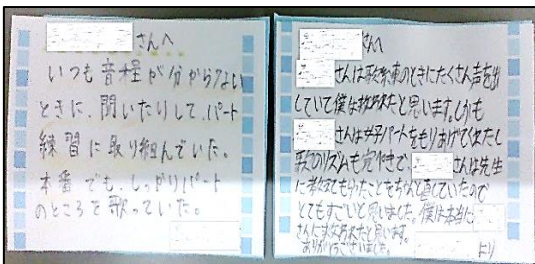 さんへ
いつも音程が分からない
ときに、聞いたりして、パート
練習に取り組んでいた。
本番でも、しっかりパート
のところを歌っていた。
さんへ
さんは歌練のときにたくさん声を出
していて僕は思います。しかも
さんは女子パートをもりあげてくれたし
歌のリズムも完ぺきで、さんは先生
に言われたことをちゃんと直していたので
とてもすごいと思いました。僕は本当に
さんに思います。
ありがとうございました。
より